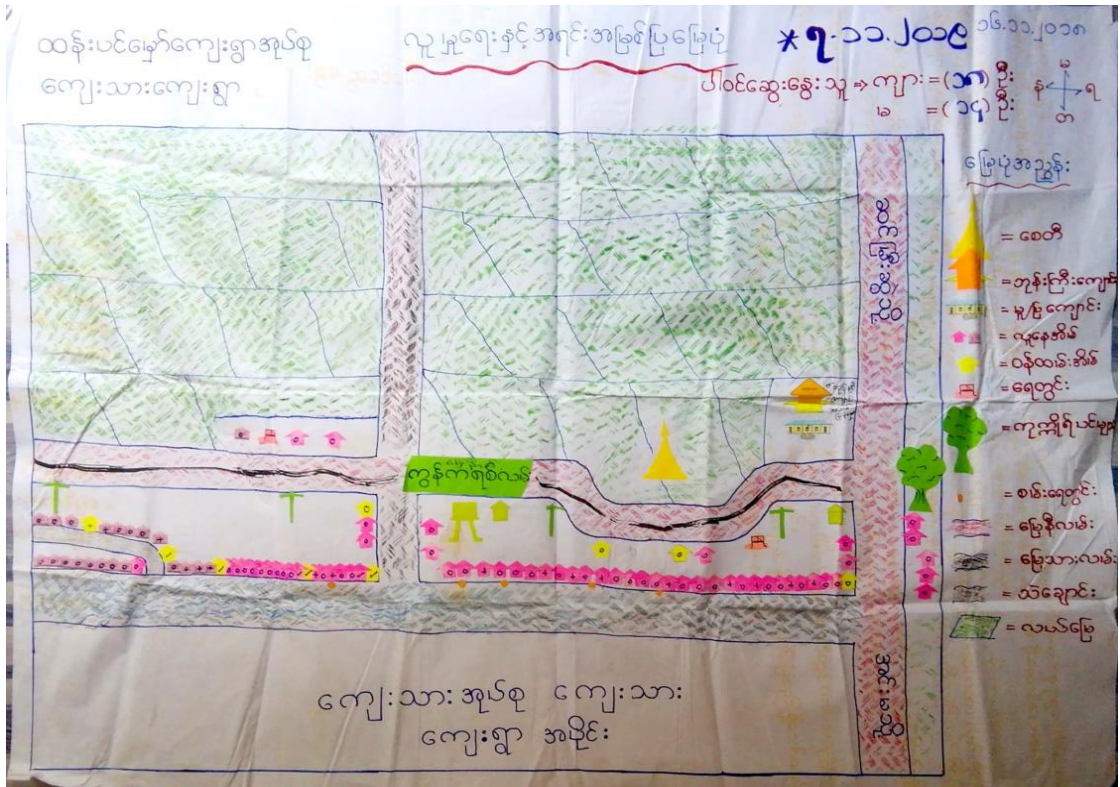 ထန်းပင်မှော်ကျေးရွာအုပ်စု
ကျေးသားကျေးရွာ
လူမှုရေးနှင့်အရင်းအမြစ်ပြမြေပုံ
*၇.၁၁.၂၀၁၉
၁၆.၁၁.၂၀၁၈
ပါဝင်ဆွေးနွေးသူ ⇒ ကျား = (၁၈) ဦး
မ = (၁၄) ဦး
မ
န ရ
တ
မြေပုံအညွှန်း
= စေတီ
= ဘုန်းကြီးကျောင်း
= မူ/ပြကျောင်း
= လူနေအိမ်
= ဝန်ထမ်းအိမ်
= ရေတွင်း
= ကုက္ကိုရ်ပင်များ
= စမ်းရေတွင်း
= မြေနီလမ်း
= မြေသားလမ်း
= သဲချောင်း
= လယ်မြေ
ကွန်ကရစ်လမ်း
ကျေးသားအုပ်စု ကျေးသား
ကျေးရွာ အပိုင်း